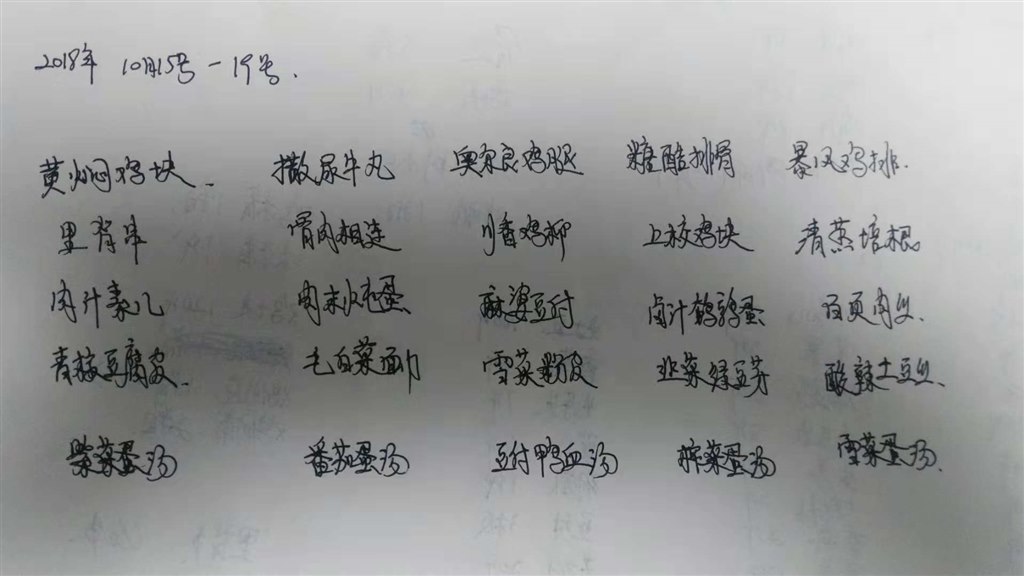 2018年 10月15号-19号.
黄焖鸡块. 撒尿牛丸 奥尔良鸡腿 糖醋排骨 暴风鸡排.
里脊串 骨肉相连 川香鸡柳 上校鸡块 青蒸培根
卤汁素几 肉末水蒸蛋 麻婆豆付 卤汁鹌鹑蛋 百页肉丝.
青椒豆腐皮. 毛白菜面巾 雪菜粉皮 韭菜绿豆芽 酸辣土豆丝.
紫菜蛋汤 番茄蛋汤 豆付鸭血汤 榨菜蛋汤 雪菜蛋汤.